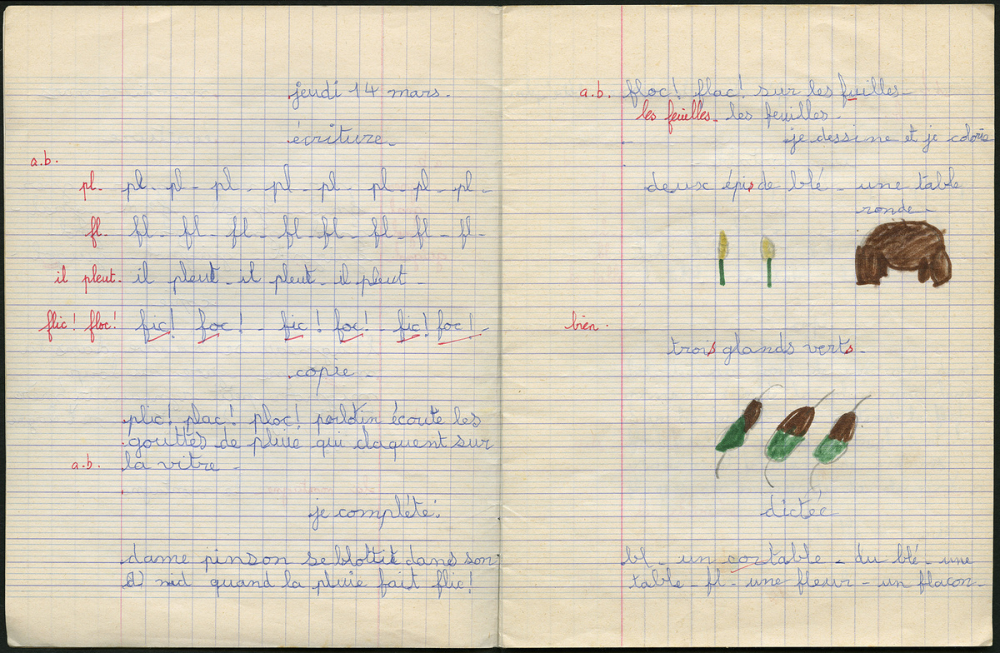 jeudi 14 mars.
écriture.
a.b.
pl. pl - pl - pl - pl - pl - pl - pl - pl -
fl. fl - fl - fl - fl - fl - fl - fl - fl -
il pleut. il pleut - il pleut - il pleut
flic! floc! fic! foc! - fic! foc! - fic! foc! -
copie -
plic! plac! ploc! écoute les
gouttes de pluie qui claquent sur
a.b. la vitre -
je complète:
dame pinson se blottit dans son
nid quand la pluie fait flic!
a.b. floc! flac! sur les fuilles -
les feuilles. les feuilles.
je dessine et je colorie
deux épis de blé - une table
ronde -
bien.
trois glands verts.
dictée
bl - un cartable - du blé - une
table - fl - une fleur - un flacon -